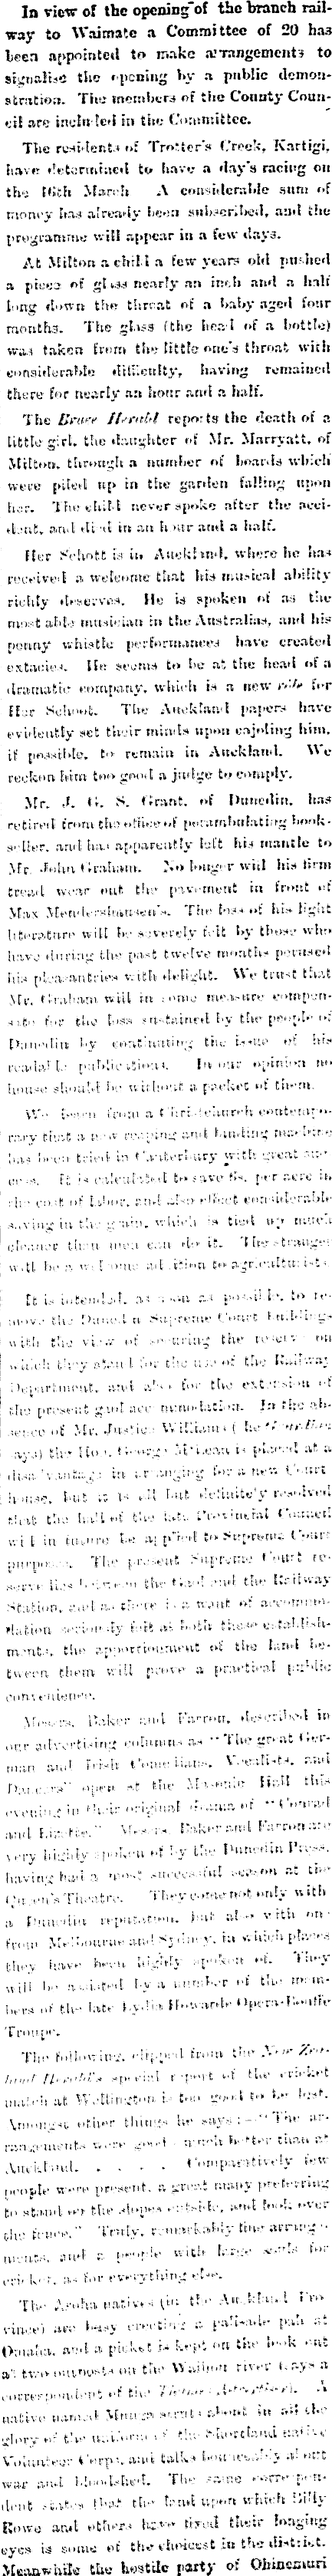 In view of the opening of the branch rail-
way to Waimate a Committee of 20 has
been appointed to make arrangements to
signalise the opening by a public demon-
stration. The members of the County Coun-
cil are included in the Committee.
The residents of Trotter's Creek, Kartigi,
have determined to have a day's racing on
the 16th March. A considerable sum of
money has already been subscribed, and the
programme will appear in a few days.
At Milton a child a few years old pushed
a piece of glass nearly an inch and a half
long down the throat of a baby aged four
months. The glass (the head of a bottle)
was taken from the little one's throat with
considerable difficulty, having remained
there for nearly an hour and a half.
The Bruce Herald reports the death of a
little girl, the daughter of Mr. Marryatt, of
Milton, through a number of boards which
were piled up in the garden falling upon
her. The child never spoke after the acci-
dent, and died in an hour and a half.
Her Schott is in Auckland, where he has
received a welcome that his musical ability
richly deserves. He is spoken of as the
most able musician in the Australias, and his
penny whistle performances have created
extacies. He seems to be at the head of a
dramatic company, which is a new rôle for
Her Schoot. The Auckland papers have
evidently set their minds upon cajoling him,
if possible, to remain in Auckland. We
reckon him too good a judge to comply.
Mr. J. G. S. Grant, of Dunedin, has
retired from the office of perambulating book-
seller, and has apparently left his mantle to
Mr. John Graham. No longer will his firm
tread wear out the pavement in front of
Max Mendershausen's. The loss of his light
literature will be severely felt by those who
have during the past twelve months perused
his pleasantries with delight. We trust that
Mr. Graham will in some measure compen-
sate for the loss sustained by the people of
Dunedin by continuing the issue of his
readable publications. In our opinion no
house should be without a packet of them.
We learn from a Christchurch contempo-
rary that a new reaping and binding machine
has been tried in Canterbury with great suc-
cess. It is calculated to save 6s. per acre in
the cost of labor, and also effect considerable
saving in the grain, which is tied up much
cleaner than men can do it. The stranger
will be a welcome addition to agriculturists.
It is intended, as soon as possible, to re-
move the Dunedin Supreme Court buildings
with the view of securing the reserve on
which they stand for the use of the Railway
Department, and also for the extension of
the present gaol accommodation. In the ab-
sence of Mr. Justice Williams (the Guardian
says) the Hon. George M'Lean is placed at a
disadvantage in arranging for a new Court-
house, but it is all but definitely resolved
that the hall of the late Provincial Council
will in future be applied to Supreme Court
purposes. The present Supreme Court re-
serve lies between the Gaol and the Railway
Station, and as there is a want of accommo-
dation seriously felt at both these establish-
ments, the apportionment of the land be-
tween them will prove a practical public
convenience.
Messrs. Baker and Farron, described in
our advertising columns as "The great Ger-
man and Irish Comedians, Vocalists, and
Dancers" open at the Masonic Hall this
evening in their original drama of "Conrad
and Lizette." Messrs. Baker and Farron are
very highly spoken of by the Dunedin Press,
having had a most successful season at the
Queen's Theatre. They come not only with
a Dunedin reputation, but also with one
from Melbourne and Sydney, in which places
they have been highly spoken of. They
will be assisted by a number of the mem-
bers of the late Lydia Howarde Opera-Bouffe
Troupe.
The following, clipped from the New Zea-
land Herald's special report of the cricket
match at Wellington is too good to be lost.
Amongst other things he says:—"The ar-
rangements were good—much better than at
Auckland. . . . . Comparatively few
people were present, a great many preferring
to stand on the slopes outside, and look over
the fence." Truly, remarkably fine arrange-
ments, and a people with large souls for
cricket, as for everything else.
The Aroha natives (in the Auckland Pro-
vince) are busy erecting a palisade pah at
Omaha, and a picket is kept on the look out
at two outposts on the Waihou river (says a
correspondent of the Thames Advertiser). A
native named struts about in all the
glory of the uniform of the Shortland native
Volunteer Corps, and talks bounceably about
war and bloodshed. The same correspon-
dent states that the land upon which Billy
Rowe and others have fixed their longing
eyes is some of the choicest in the district.
Meanwhile the hostile party of Ohinemuri